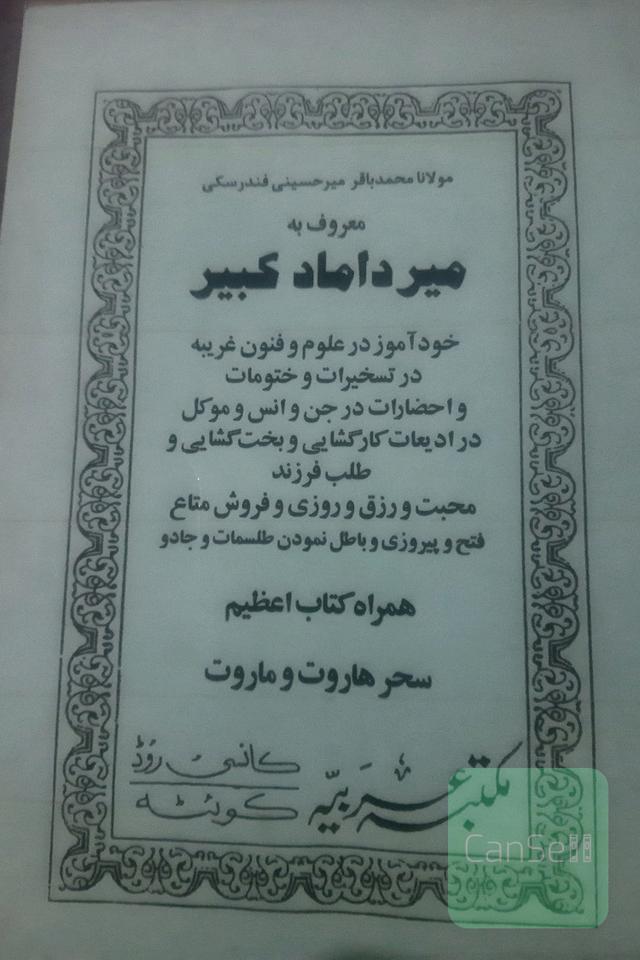 مولانا محمدباقر میرحسینی فندرسکی
معروف به
میرداماد کبیر
خودآموز در علوم و فنون غریبه
در تسخیرات و ختومات
و احضارات در جن و انس و موکل
در ادیعات کارگشایی و بخت‌گشایی و
طلب فرزند
محبت و رزق و روزی و فروش متاع
فتح و پیروزی و باطل نمودن طلسمات و جادو
همراه کتاب اعظیم
سحر هاروت و ماروت
مکتبہ عربیّہ
کانسی روڈ
کوئٹہ
CanSell